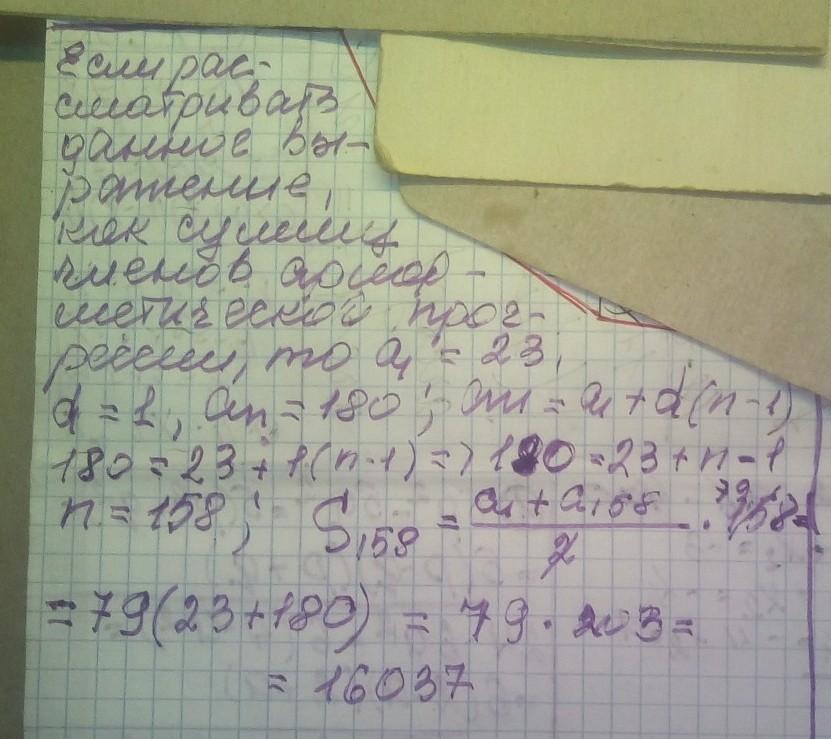 Если рас-
сматривать
данное вы-
ражение,
как сумму
членов ариф-
метической прог-
рессии, то a₁ = 23,
d = 1, an = 180; an = a₁ + d(n-1)
180 = 23 + 1(n-1) => 180 = 23 + n - 1
n = 158; S₁₅₈ = (a₁ + a₁₅₈)/2 · 158 =
79
= 79(23+180) = 79 · 203 =
= 16037